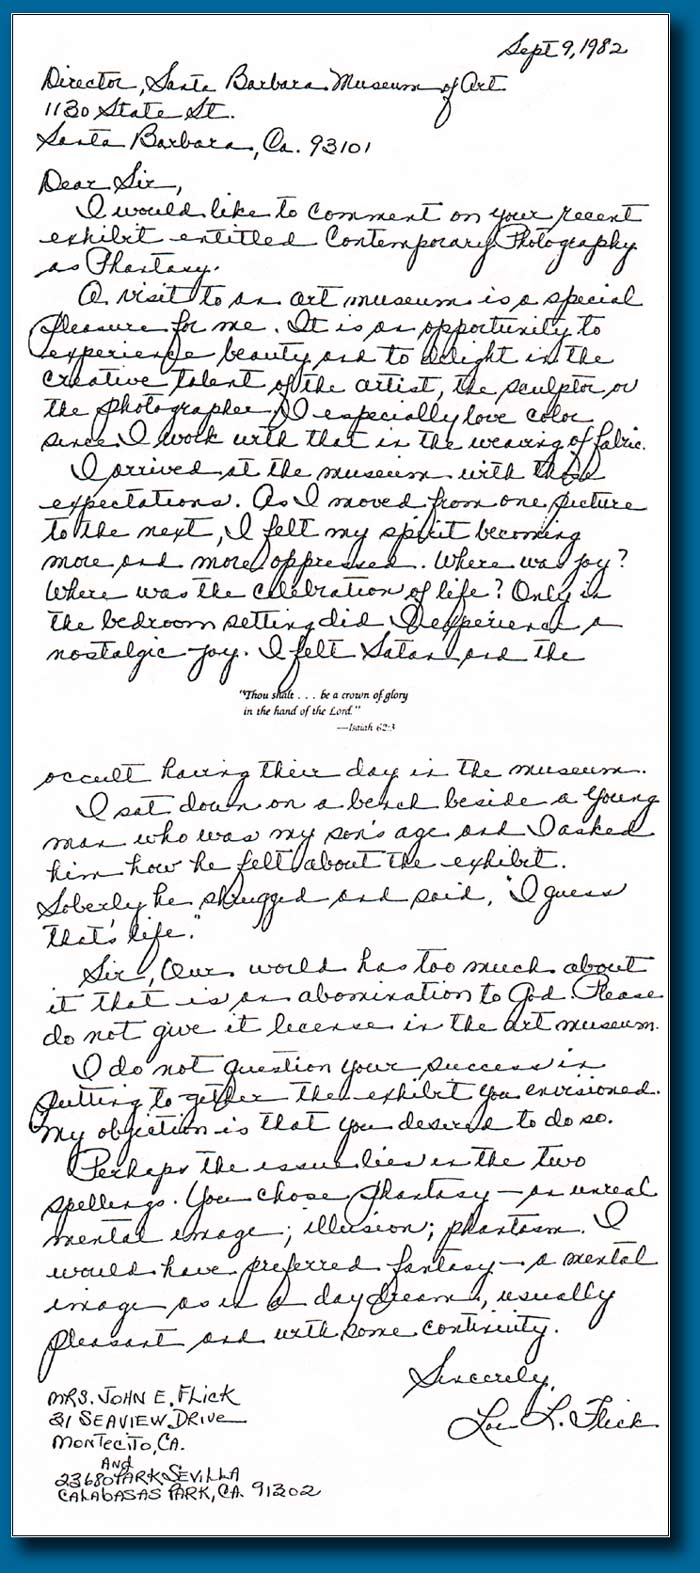 Sept 9, 1982
Director, Santa Barbara Museum of Art
1130 State St.
Santa Barbara, Ca. 93101
Dear Sir,
I would like to comment on your recent
exhibit entitled Contemporary Photography
as Phantasy.
A visit to an art museum is a special
pleasure for me. It is an opportunity to
experience beauty and to delight in the
creative talent of the artist, the sculptor or
the photographer. I especially love color
since I work with that in the weaving of fabric.
I arrived at the museum with those
expectations. As I moved from one picture
to the next, I felt my spirit becoming
more and more oppressed. Where was joy?
Where was the celebration of life? Only in
the bedroom setting did I experience a
nostalgic joy. I felt Satan and the
"Thou shalt . . . be a crown of glory
in the hand of the Lord."
—Isaiah 62:3
occult having their day in the museum.
I sat down on a bench beside a young
man who was my son's age and I asked
him how he felt about the exhibit.
Soberly he shrugged and said, "I guess
that's life."
Sir, Our world has too much about
it that is an abomination to God. Please
do not give it license in the art museum.
I do not question your success in
putting to gether the exhibit you envisioned.
My objection is that you desired to do so.
Perhaps the issue lies in the two
spellings. You chose phantasy — an unreal
mental image; illusion; phantasm. I
would have preferred fantasy — a mental
image as in a day dream, usually
pleasant and with some continuity.
Sincerely,
Lou L. Flick
MRS. JOHN E. FLICK
31 SEAVIEW DRIVE
MONTECITO, CA.
AND
23680 PARK SEVILLA
CALABASAS PARK, CA. 91302